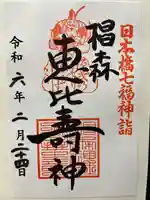 日本橋七福神詣
椙森
恵比寿神
令和六年二月二十四日